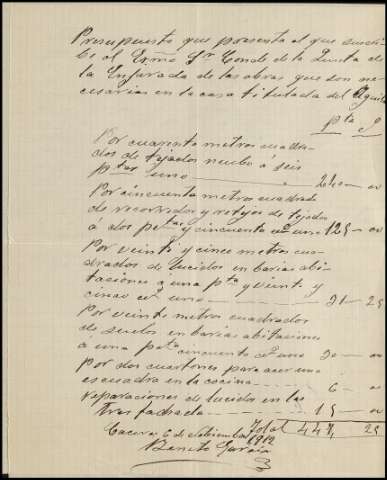 Presupuesto que presenta el que suscri-
be al Exmo Sr Conde de la Quinta de
la Enjarada de las obras que son ne-
cesarias en la casa titulada del Aguila
pta cs
Por cuarenta metros cuadra-
dos de tejados nuebo á seis
ptas uno 240 00
Por cincuenta metros cuadrado
de recorridos y retejos de tejados
á dos ptas y cincuenta cs uno 125 00
Por veinte y cinco metros cua-
drados de lucidos en barias abi-
taciones a una pta y veinte y
cinco cs uno 31 25
Por veinte metros cuadrados
de suelos en barias abitaciones
á una pta cincuenta cs uno 30 00
por dos cuartones para acer una
escuadra en la cocina 6 00
reparaciones de lucido en las
tras fachada 15 00
Total 447, 25
Caceres 6 de Nobiembre 1912
Benito Garcia